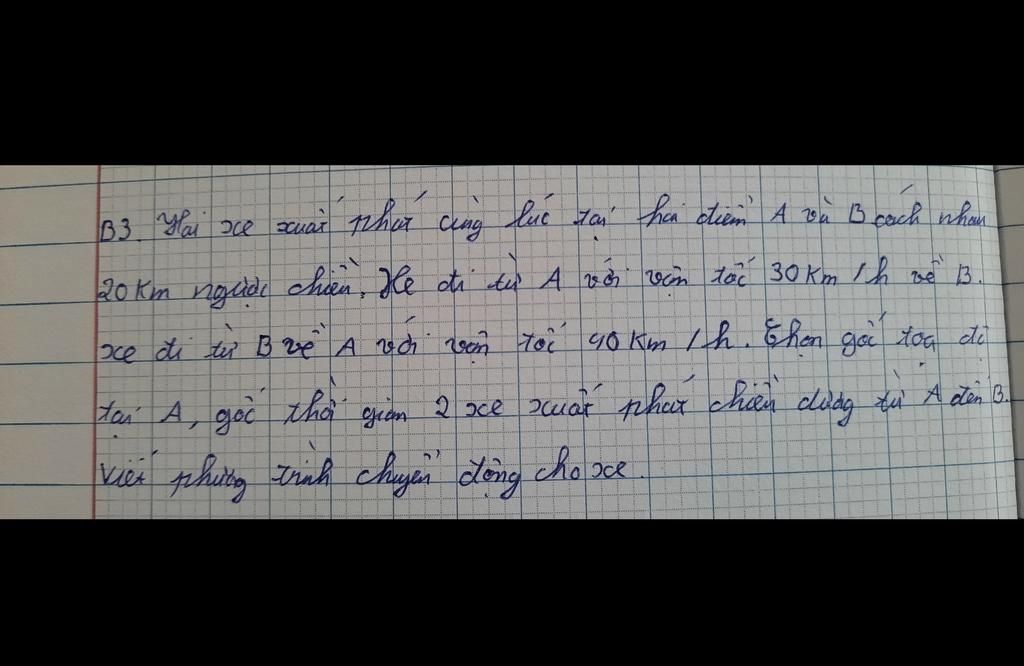 B3. Hai xe xuất phát cùng lúc tại hai điểm A và B cách nhau
20 km ngược chiều. Xe đi từ A với vận tốc 30 km /h về B.
xe đi từ B về A với vận tốc 40 km /h. Chọn gốc toạ độ
tại A, gốc thời gian 2 xe xuất phát chiều dương từ A đến B.
Viết phương trình chuyển động cho xe.